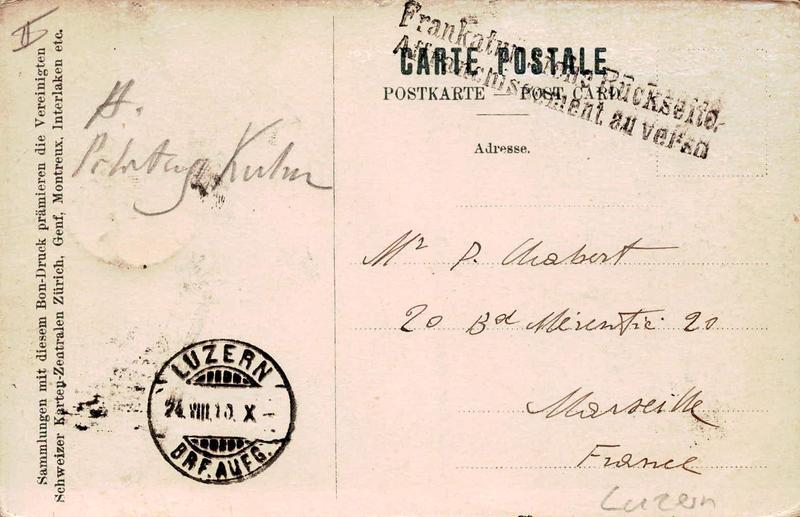 II
Sammlungen mit diesem Bon-Druck prämieren die Vereinigten
Schweizer Karten-Zentralen Zürich, Genf, Montreux, Interlaken etc.
LUZERN
24.VIII.10. X
BRF.AUFG.
Frankatur Rückseite.
Affranchissement au verso
CARTE POSTALE
POSTKARTE — POST CARD
Adresse.
Mr P. Chabert
20 Bd Mérentié 20
Marseille
France
Luzern